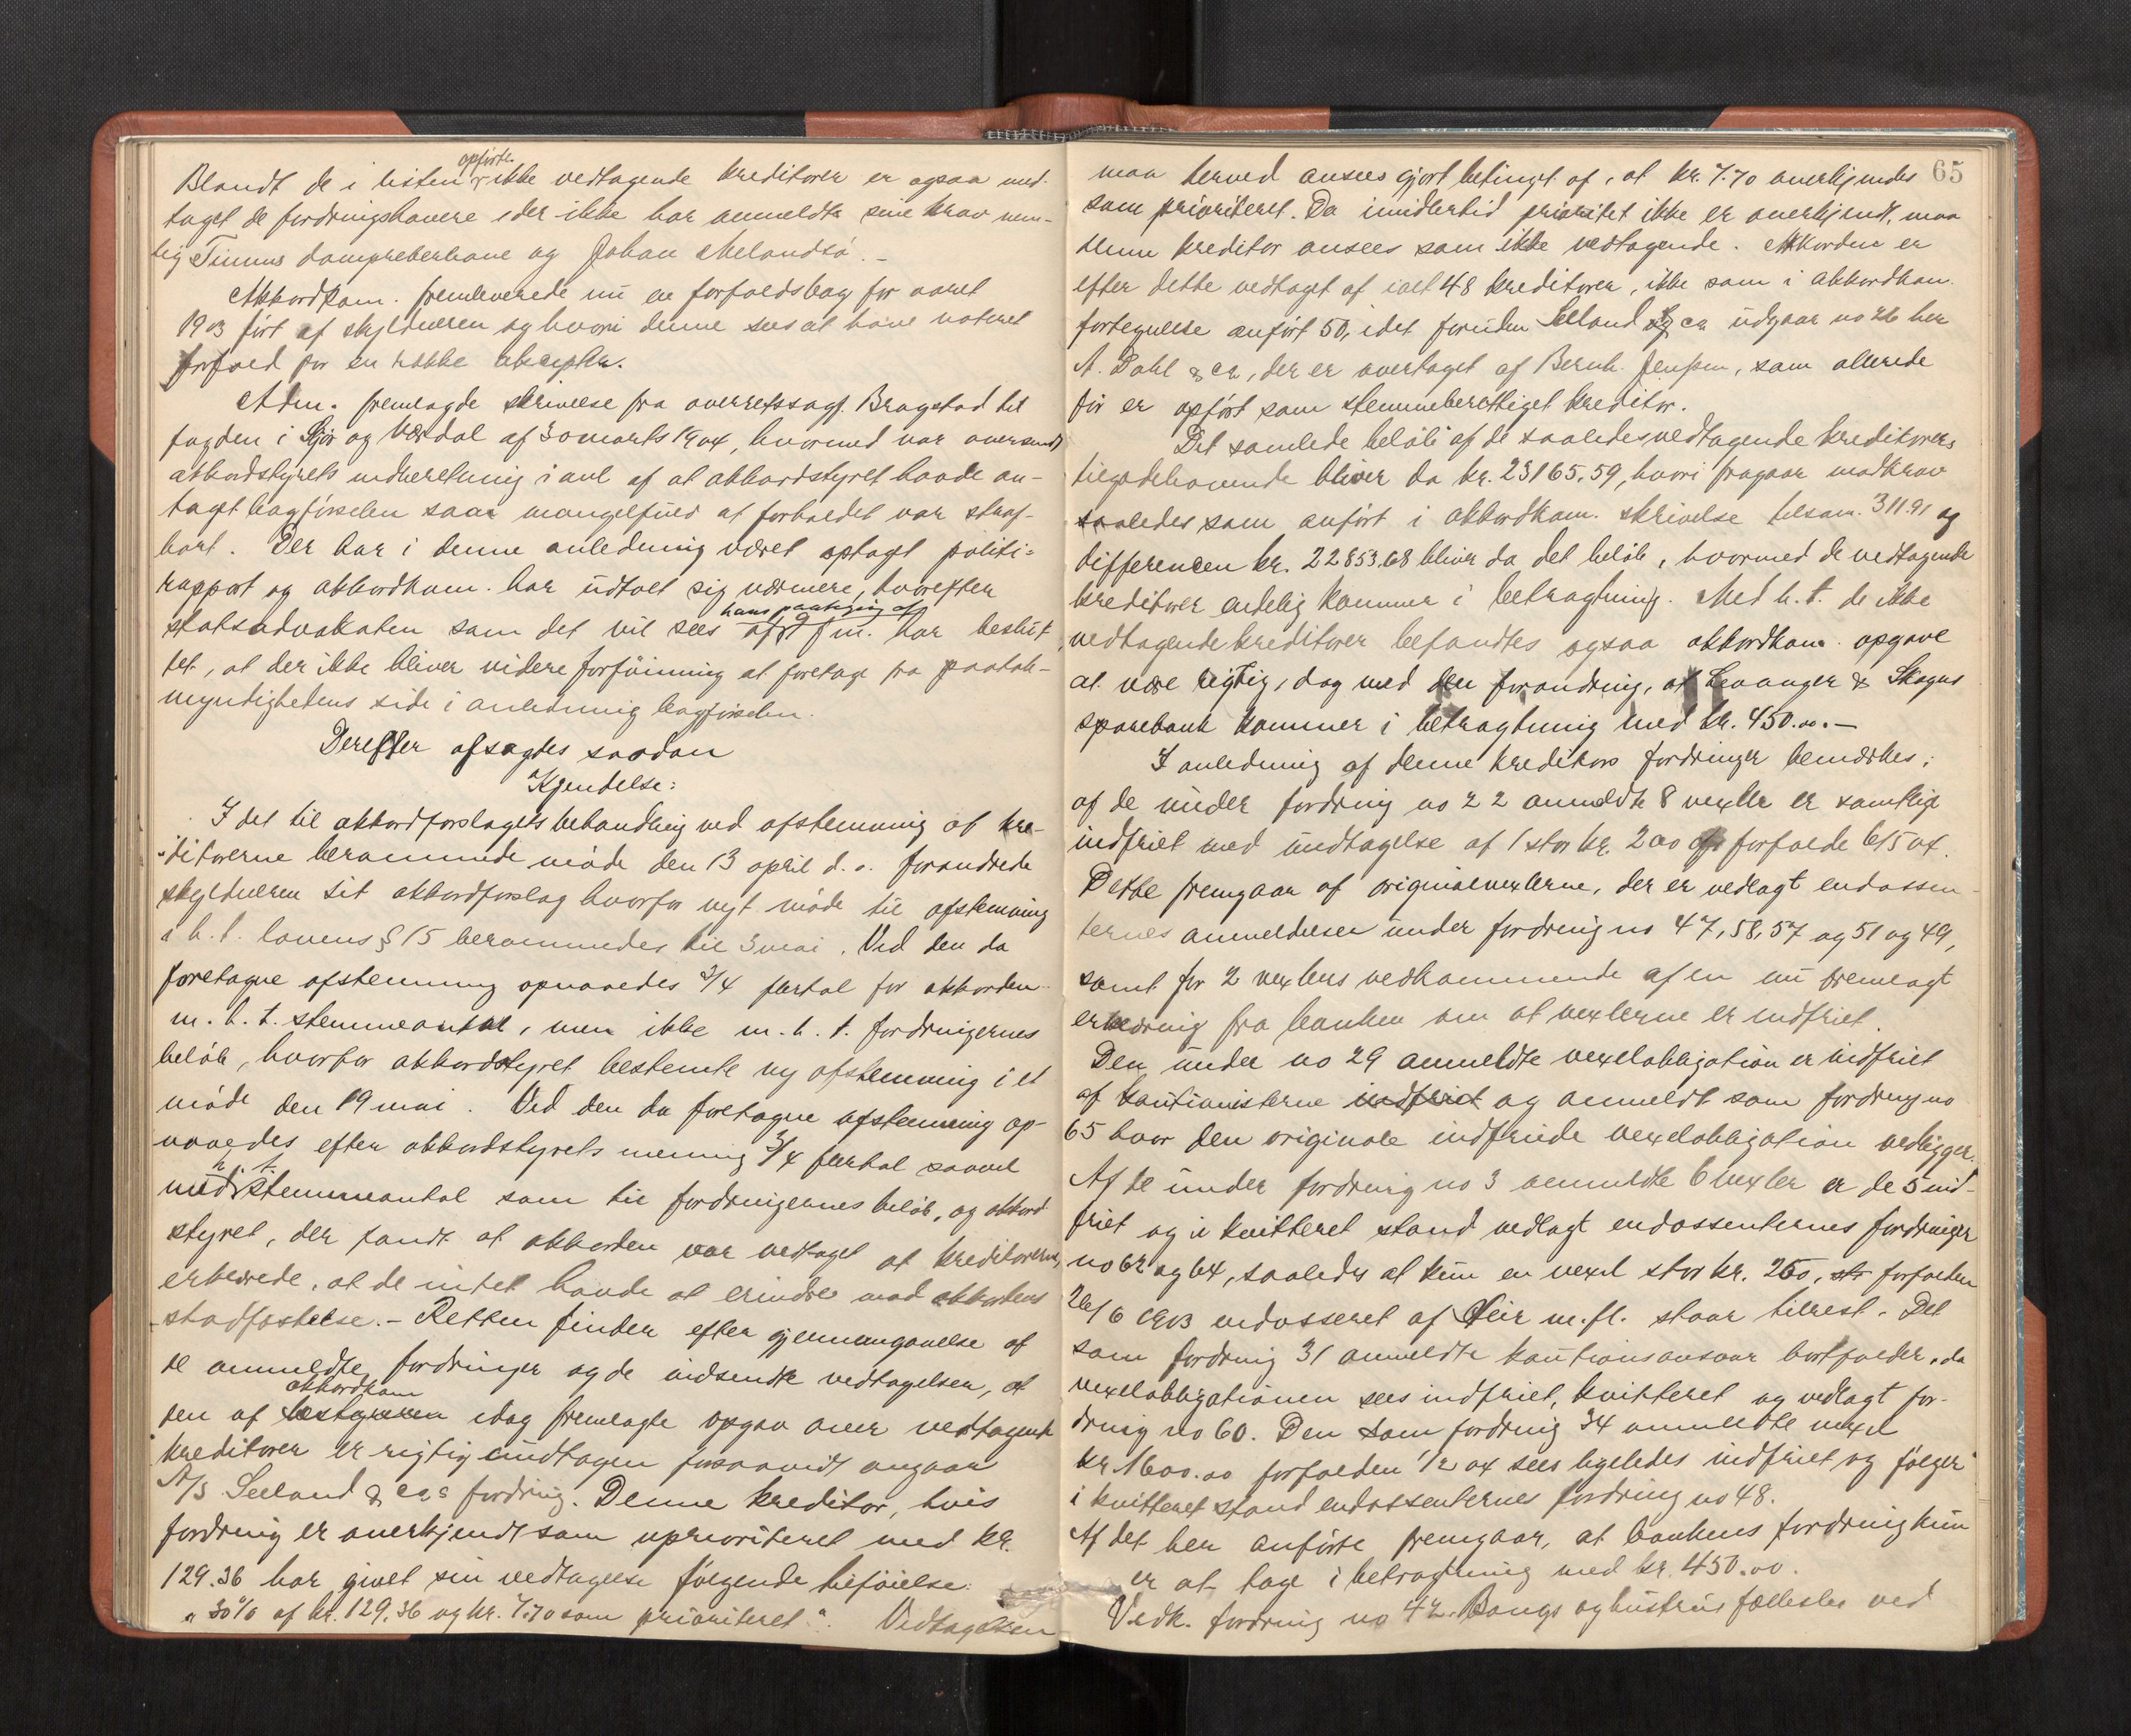 Blandt de i listen opførte ikke vedtagende kreditorer er ogsaa med-
taget de fordringshavere der ikke har anmeldt sine krav nem-
lig Timms dampreberbane og Johan Melandsö. –
Akkordkom. fremleverede nu en forfaldsbog for aaret
1903 ført af skyldneren og hvori denne sees at have noteret
forfald for en række accepter.
Adm. fremlagde skrivelse fra overretssagf. Bragstad til
fogden i Stjør og Værdal af 30 marts 1904, hvormed var oversendt
akkordstyrets indberetning i anl. af at akkordstyret havde an-
taget bogførselen saa mangelfuld at forholdet var straf-
bart. Der har i denne anledning været optaget politi-
rapport og akkordkom. har udtalt sig nærmere, hvorefter
statsadvokaten som det vil sees af hans paategning af f. m. har beslut-
tet, at der ikke bliver videre forføining at foretage fra paatale-
myndighedens side i anledning bogførselen.
Derefter afsagdes saadan
Kjendelse:
I det til akkordforslagets behandling ved afstemning af kre-
ditorerne berammede møde den 13 april d. a. forandrede
skyldneren sit akkordforslag hvorfor nyt møde til afstemning
i h. t. lovens § 15 berammedes til 3 mai. Ved den da
foretagne afstemning opnaaedes 3/4 flertal for akkorden
m. h. t. stemmeantal, men ikke m. h. t. fordringernes
beløb, hvorfor akkordstyret bestemte ny afstemning i et
møde den 19 mai. Ved den da foretagne afstemning op-
naaedes efter akkordstyrets mening 3/4 flertal saavel
med h. t. stemmeantal som til fordringernes beløb, og akkord-
styret, der fandt at akkorden var vedtaget af kreditorerne,
erklærede, at de intet havde at erindre mod akkordens
stadfæstelse. – Retten finder efter gjennemgaaelse af
de anmeldte fordringer og de indsendte vedtagelser, at
den af akkordkom idag fremlagte opgav over vedtagende
kreditorer er rigtig undtagen forsaavidt angaar
A/S Selland & co.s fordring. Denne kreditor, hvis
fordring er anerkjendt som uprioriteret med kr.
129.36 har givet sin vedtagelse følgende tilføielse:
"30% af kr. 129.36 og kr. 7.70 som prioriteret". Vedtagelsen
65
maa herved ansees gjort betinget af, at kr. 7.70 anerkjendes
som prioriteret. Da imidlertid prioritet ikke er anerkjendt, maa
denne kreditor ansees som ikke vedtagende. Akkorden er
efter dette vedtaget af ialt 48 kreditorer, ikke som i akkordkom.
fortegnelse anført 50, idet foruden Selland & co udgaar no 26 her
A. Dahl & co, der er overtaget af Bernh. Jenssen, som allerede
før er opført som stemmeberettiget kreditor.
Det samlede beløb af de saaledes vedtagende kreditorers
tilgodehavende bliver da kr. 23165.59, hvori fragaar modkrav
saaledes som anført i akkordkom. skrivelse tilsam. 311.91 og
differencen kr. 22853.68 bliver da det beløb, hvormed de vedtagende
kreditorer endelig kommer i betragtning. Med h. t. de ikke
vedtagende kreditorer befandtes ogsaa akkordkom. opgave
at være rigtig, dog med den forandring, at Levanger & Skogns
sparebank kommer i betragtning med kr. 450.00. –
I anledning af denne kreditors fordringer bemærkes:
af de under fordring no 22 anmeldte 8 vexler er samtlige
indfriet med undtagelse af 1 stor kr. 200 forfalde 6/5 04.
Dette fremgaar af originalvexlerne, der er vedlagt endossen-
ternes anmeldelser under fordring no 47, 58, 57 og 51 og 49,
samt for 2 vexlers vedkommende af en nu fremlagt
erklæring fra banken om at vexlerne er indfriet.
Den under no 29 anmeldte vexelobligation er indfriet
af kautionisterne indfriet og anmeldt som fordring no
65 hvor den originale indfriede vexelobligation vedligger.
Af de under fordring no 3 anmeldte 6 vexler er de 5 ind-
friet og i kvitteret stand vedlagt endossenternes fordringer
no 62 og 64, saaledes at kun en vexel stor kr. 250, forfalden
26/6 1903 endosseret af Five m. fl. staar tilrest. Det
som fordring 31 anmeldte kautionsansvar bortfalder, da
vexelobligationen sees indfriet, kvitteret og vedlagt for-
dring no 60. Den som fordring 34 anmeldte vexel
kr 1600.00 forfalden 1/2 04 sees ligeledes indfriet og følger
i kvitteret stand endossenternes fordring no 48.
Af det her anførte fremgaar, at bankens fordring kun
er at tage i betragtning med kr. 450.00.
Vedk. fordring no 42. Bangs og hustrus fællesbo ved